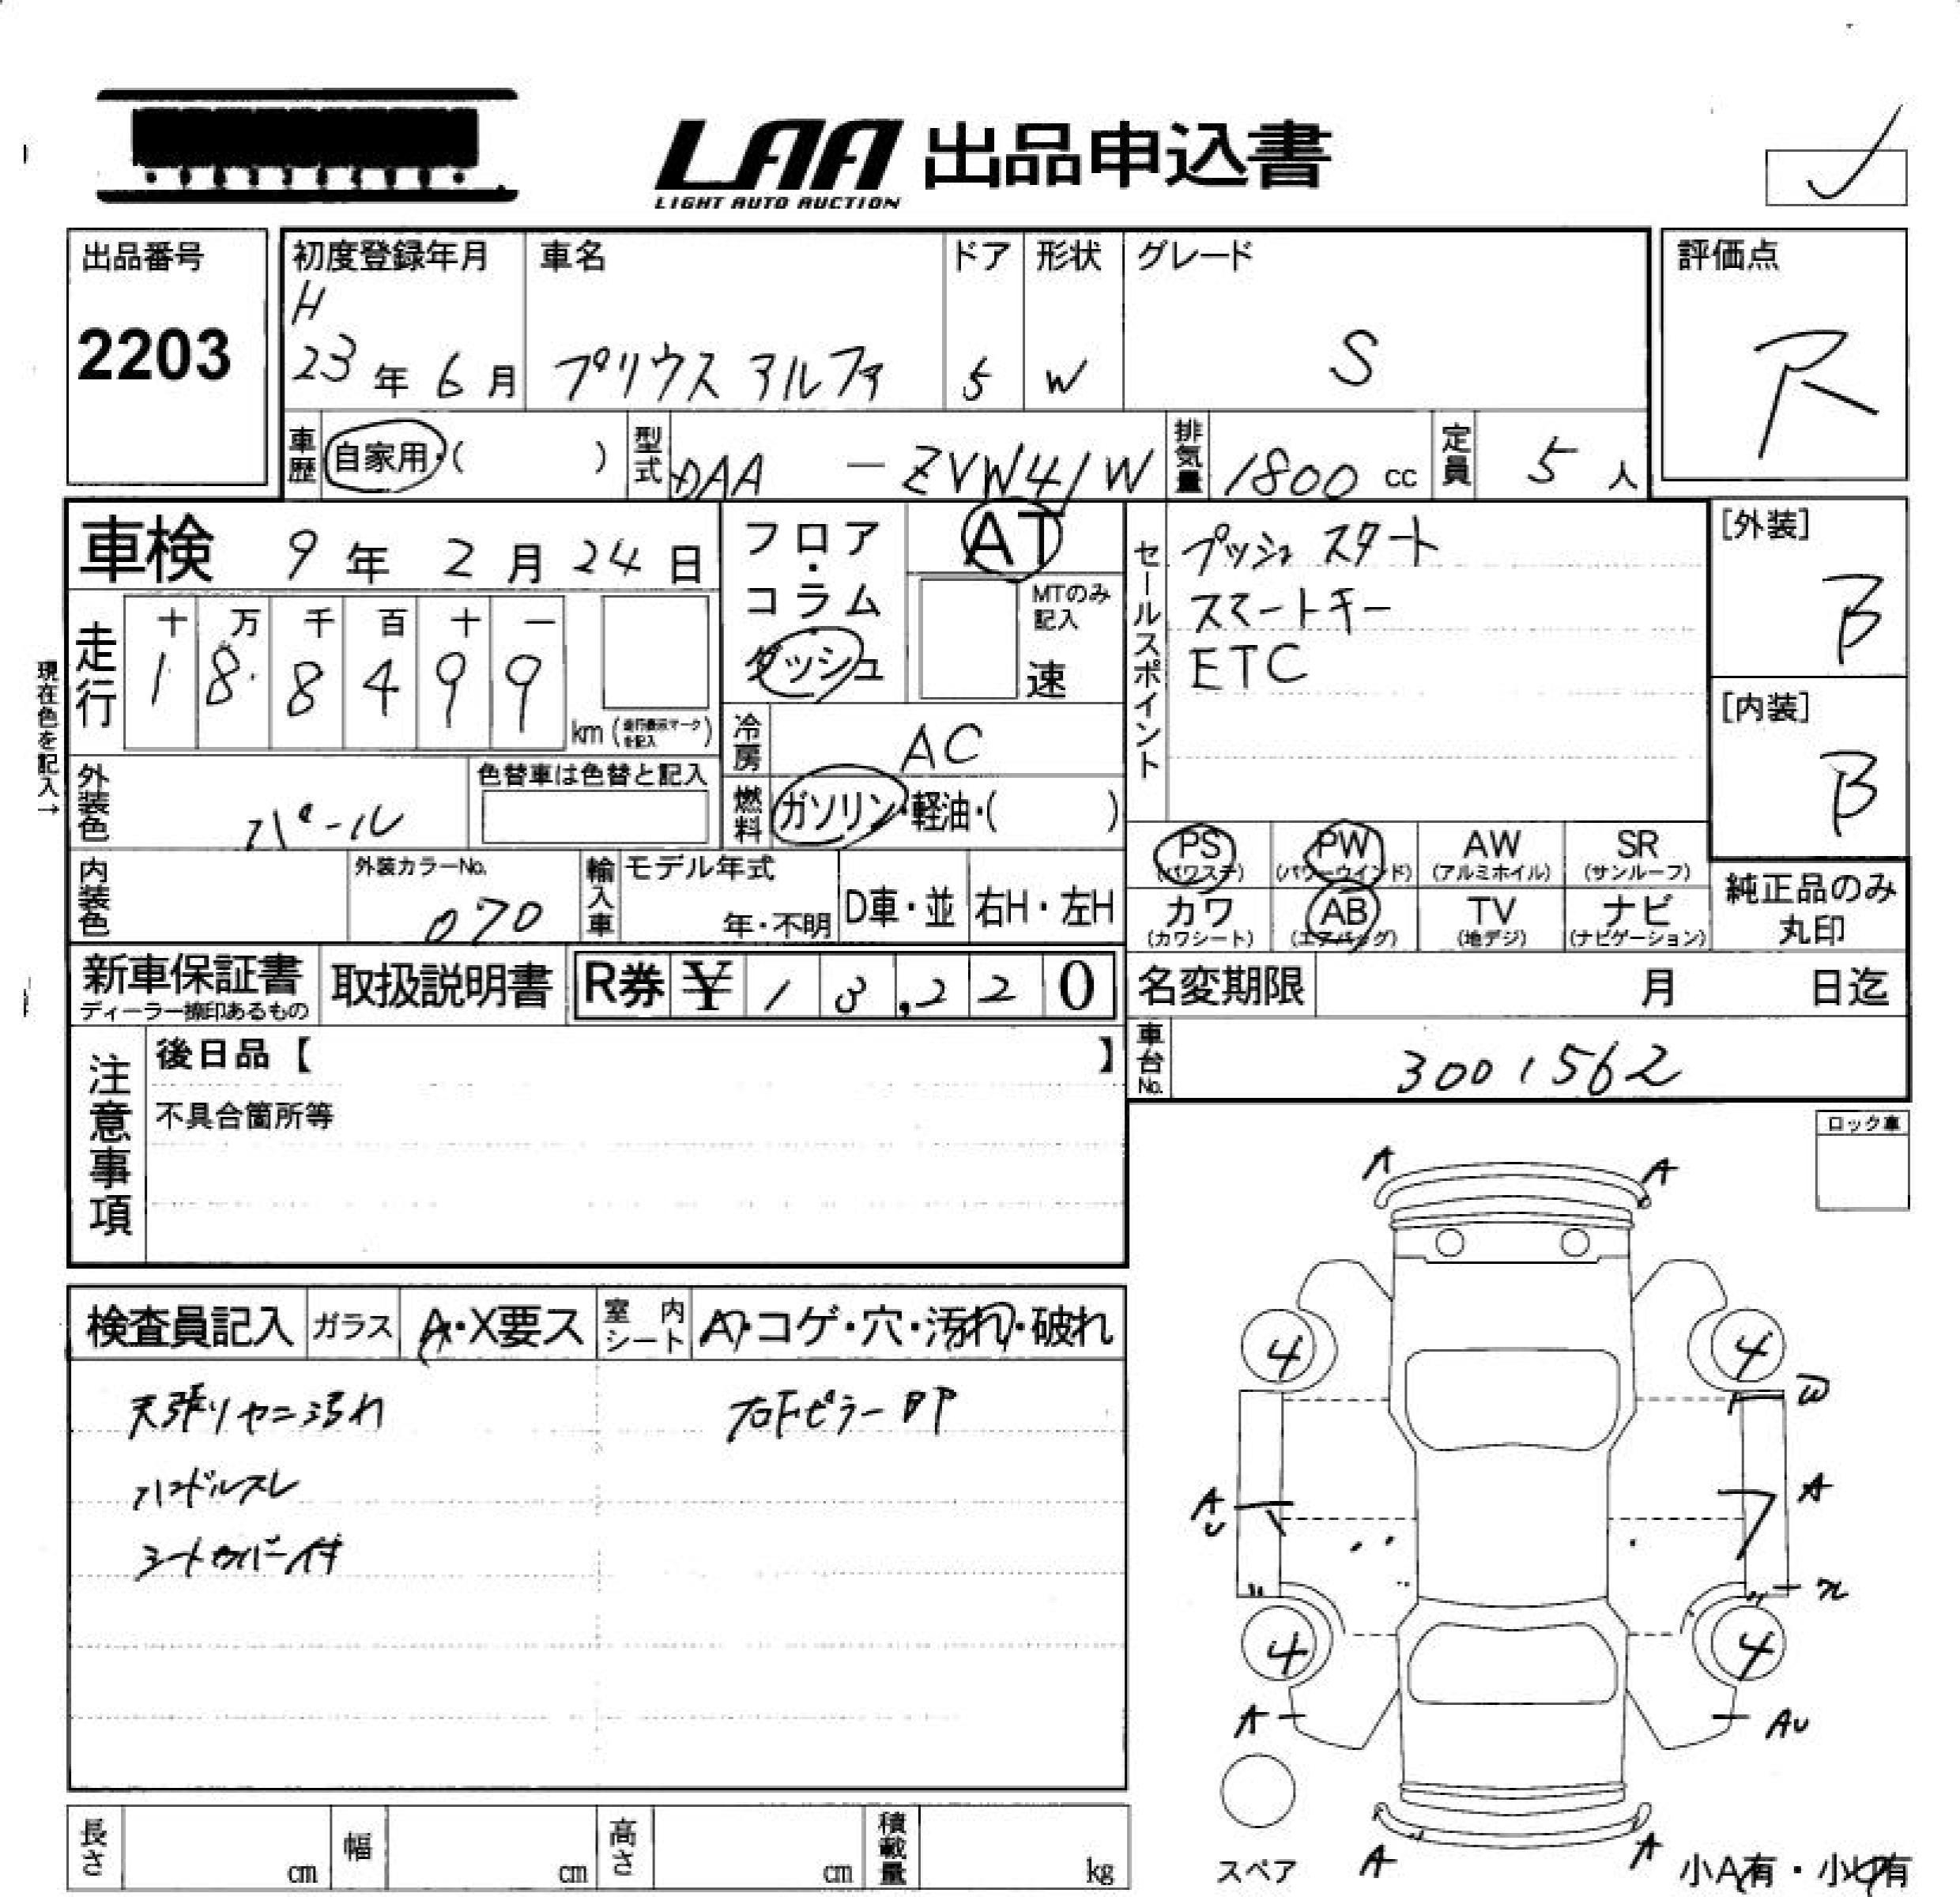 LAA 出品申込書
LIGHT AUTO AUCTION
出品番号
2203
初度登録年月
H
23年 6月
車名
プリウス アルファ
ドア
5
形状
W
グレード
S
評価点
R
車歴
自家用・( )
型式
DAA - ZVW41W
排気量
1800 cc
定員
5人
車検 9年 2月 24日
走行
十 万 千 百 十 一
1 8 8 4 9 9
km (走行表示マークを記入)
現在色を記入→
外装色
パール
色替車は色替と記入
内装色
外装カラーNo.
070
輸入車
モデル年式
年・不明
D車・並
右H・左H
フロア・コラム
ダッシュ
AT
MTのみ
記入
速
冷房
AC
燃料
ガソリン・軽油・( )
セールスポイント
プッシュ スタート
スマートキー
ETC
[外装]
B
[内装]
B
PS
(パワステ)
PW
(パワーウインド)
AW
(アルミホイル)
SR
(サンルーフ)
カワ
(カワシート)
AB
(エアバッグ)
TV
(地デジ)
ナビ
(ナビゲーション)
純正品のみ
丸印
新車保証書
ディーラー捺印あるもの
取扱説明書
R券 ¥ 13,220
名変期限 月 日迄
車台No.
3001562
注意事項
後日品【 】
不具合箇所等
ロック車
検査員記入
ガラス
A・X要ス
室内シート
スレ・コゲ・穴・汚れ・破れ
天張りヤニ汚れ
ハンドルスレ
シートカバー付
右Fピラー
A A
4 4
W
A
U
A
4 4
A
AU
スペア
A A
小A有・小U有
長さ cm
幅 cm
高さ cm
積載量 kg